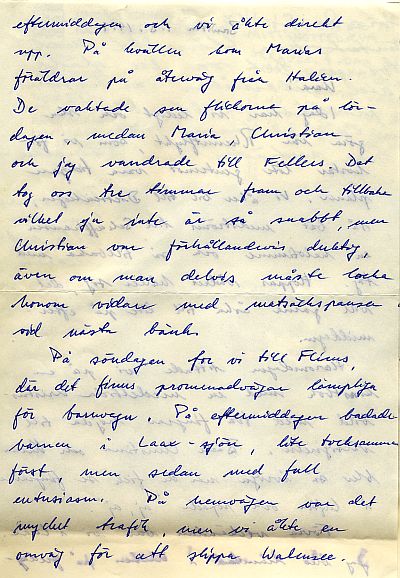 eftermiddagen och vi åkte direkt
upp. På kvällen kom Marias
föräldrar på återväg från Italien.
De vaktade sen flickorna på lör-
dagen, medan Maria, Christian
och jag vandrade till Fellers. Det
tog oss tre timmar fram och tillbaka
vilket ju inte är så snabbt, men
Christian var förhållandevis duktig,
även om man delvis måste locka
honom vidare med matsäckspauser
vid nästa bänk.
På söndagen for vi till Flims,
där det finns promenadvägar lämpliga
för barnvagn. På eftermiddagen badade
barnen i Laax-sjön, lite tveksamma
först, men sedan med full
entusiasm. På hemvägen var det
mycket trafik, men vi åkte en
omväg för att slippa Walensee.